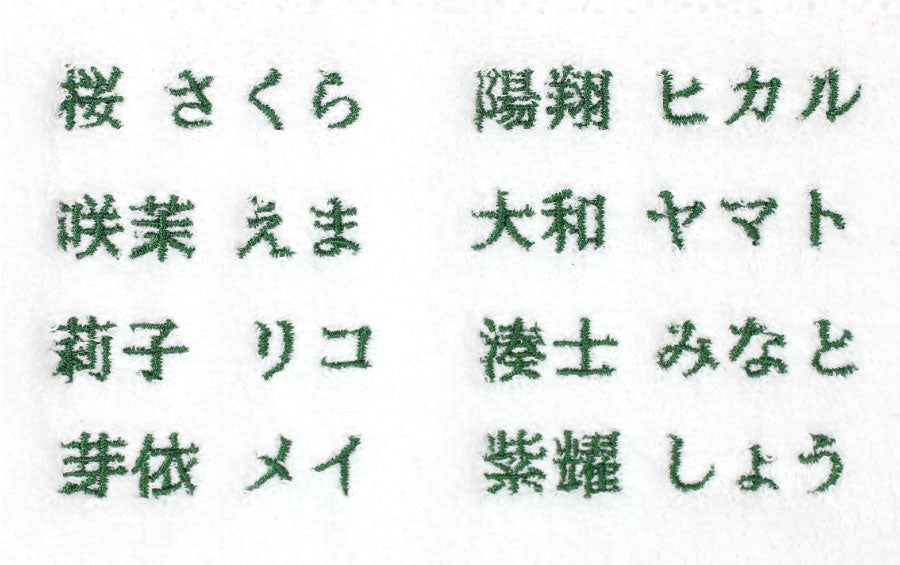 桜 さくら
咲茉 えま
莉子 リコ
芽依 メイ
陽翔 ヒカル
大和 ヤマト
湊士 みなと
紫耀 しょう